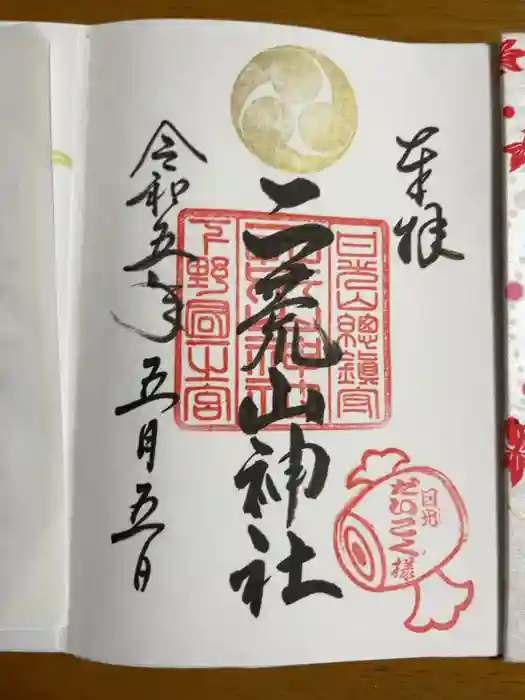 奉拝
二荒山神社
令和五年
五月五日
日光山總鎮守
下野國一之宮
日光
だいこく様